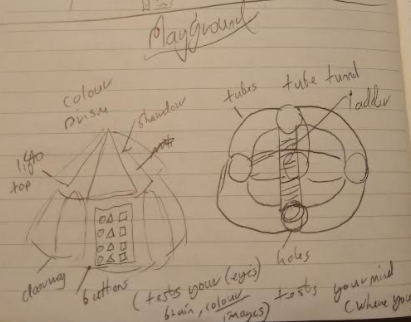 Playground
colour
prism
shawdow
tubes
tube tunnel
ladder
lift
top
doorway
buttons
holes
(tests your (eyes)
brain, colour
images)
tests your mind
(where you